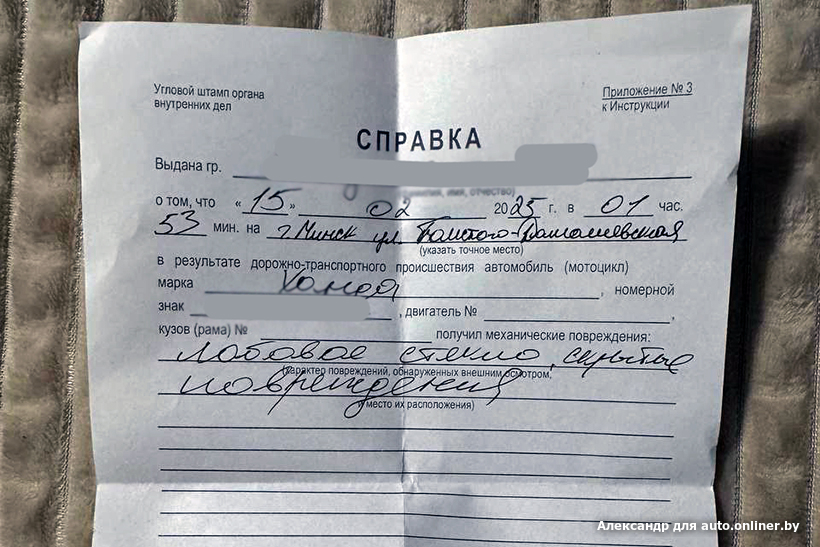 Угловой штамп органа
внутренних дел
Приложение № 3
к Инструкции
СПРАВКА
Выдана гр.
имя, отчество)
о том, что « 15 » 02 2025 г. в 01 час.
53 мин. на г. Минск ул. Толстого-
(указать точное место)
в результате дорожно-транспортного происшествия автомобиль (мотоцикл)
марка Хонда, номерной
знак , двигатель № ,
кузов (рама) № получил механические повреждения:
лобовое стекло, скрытые
(характер повреждений, обнаруженных внешним осмотром,
повреждения
и место их расположения)
Александр для auto.onliner.by